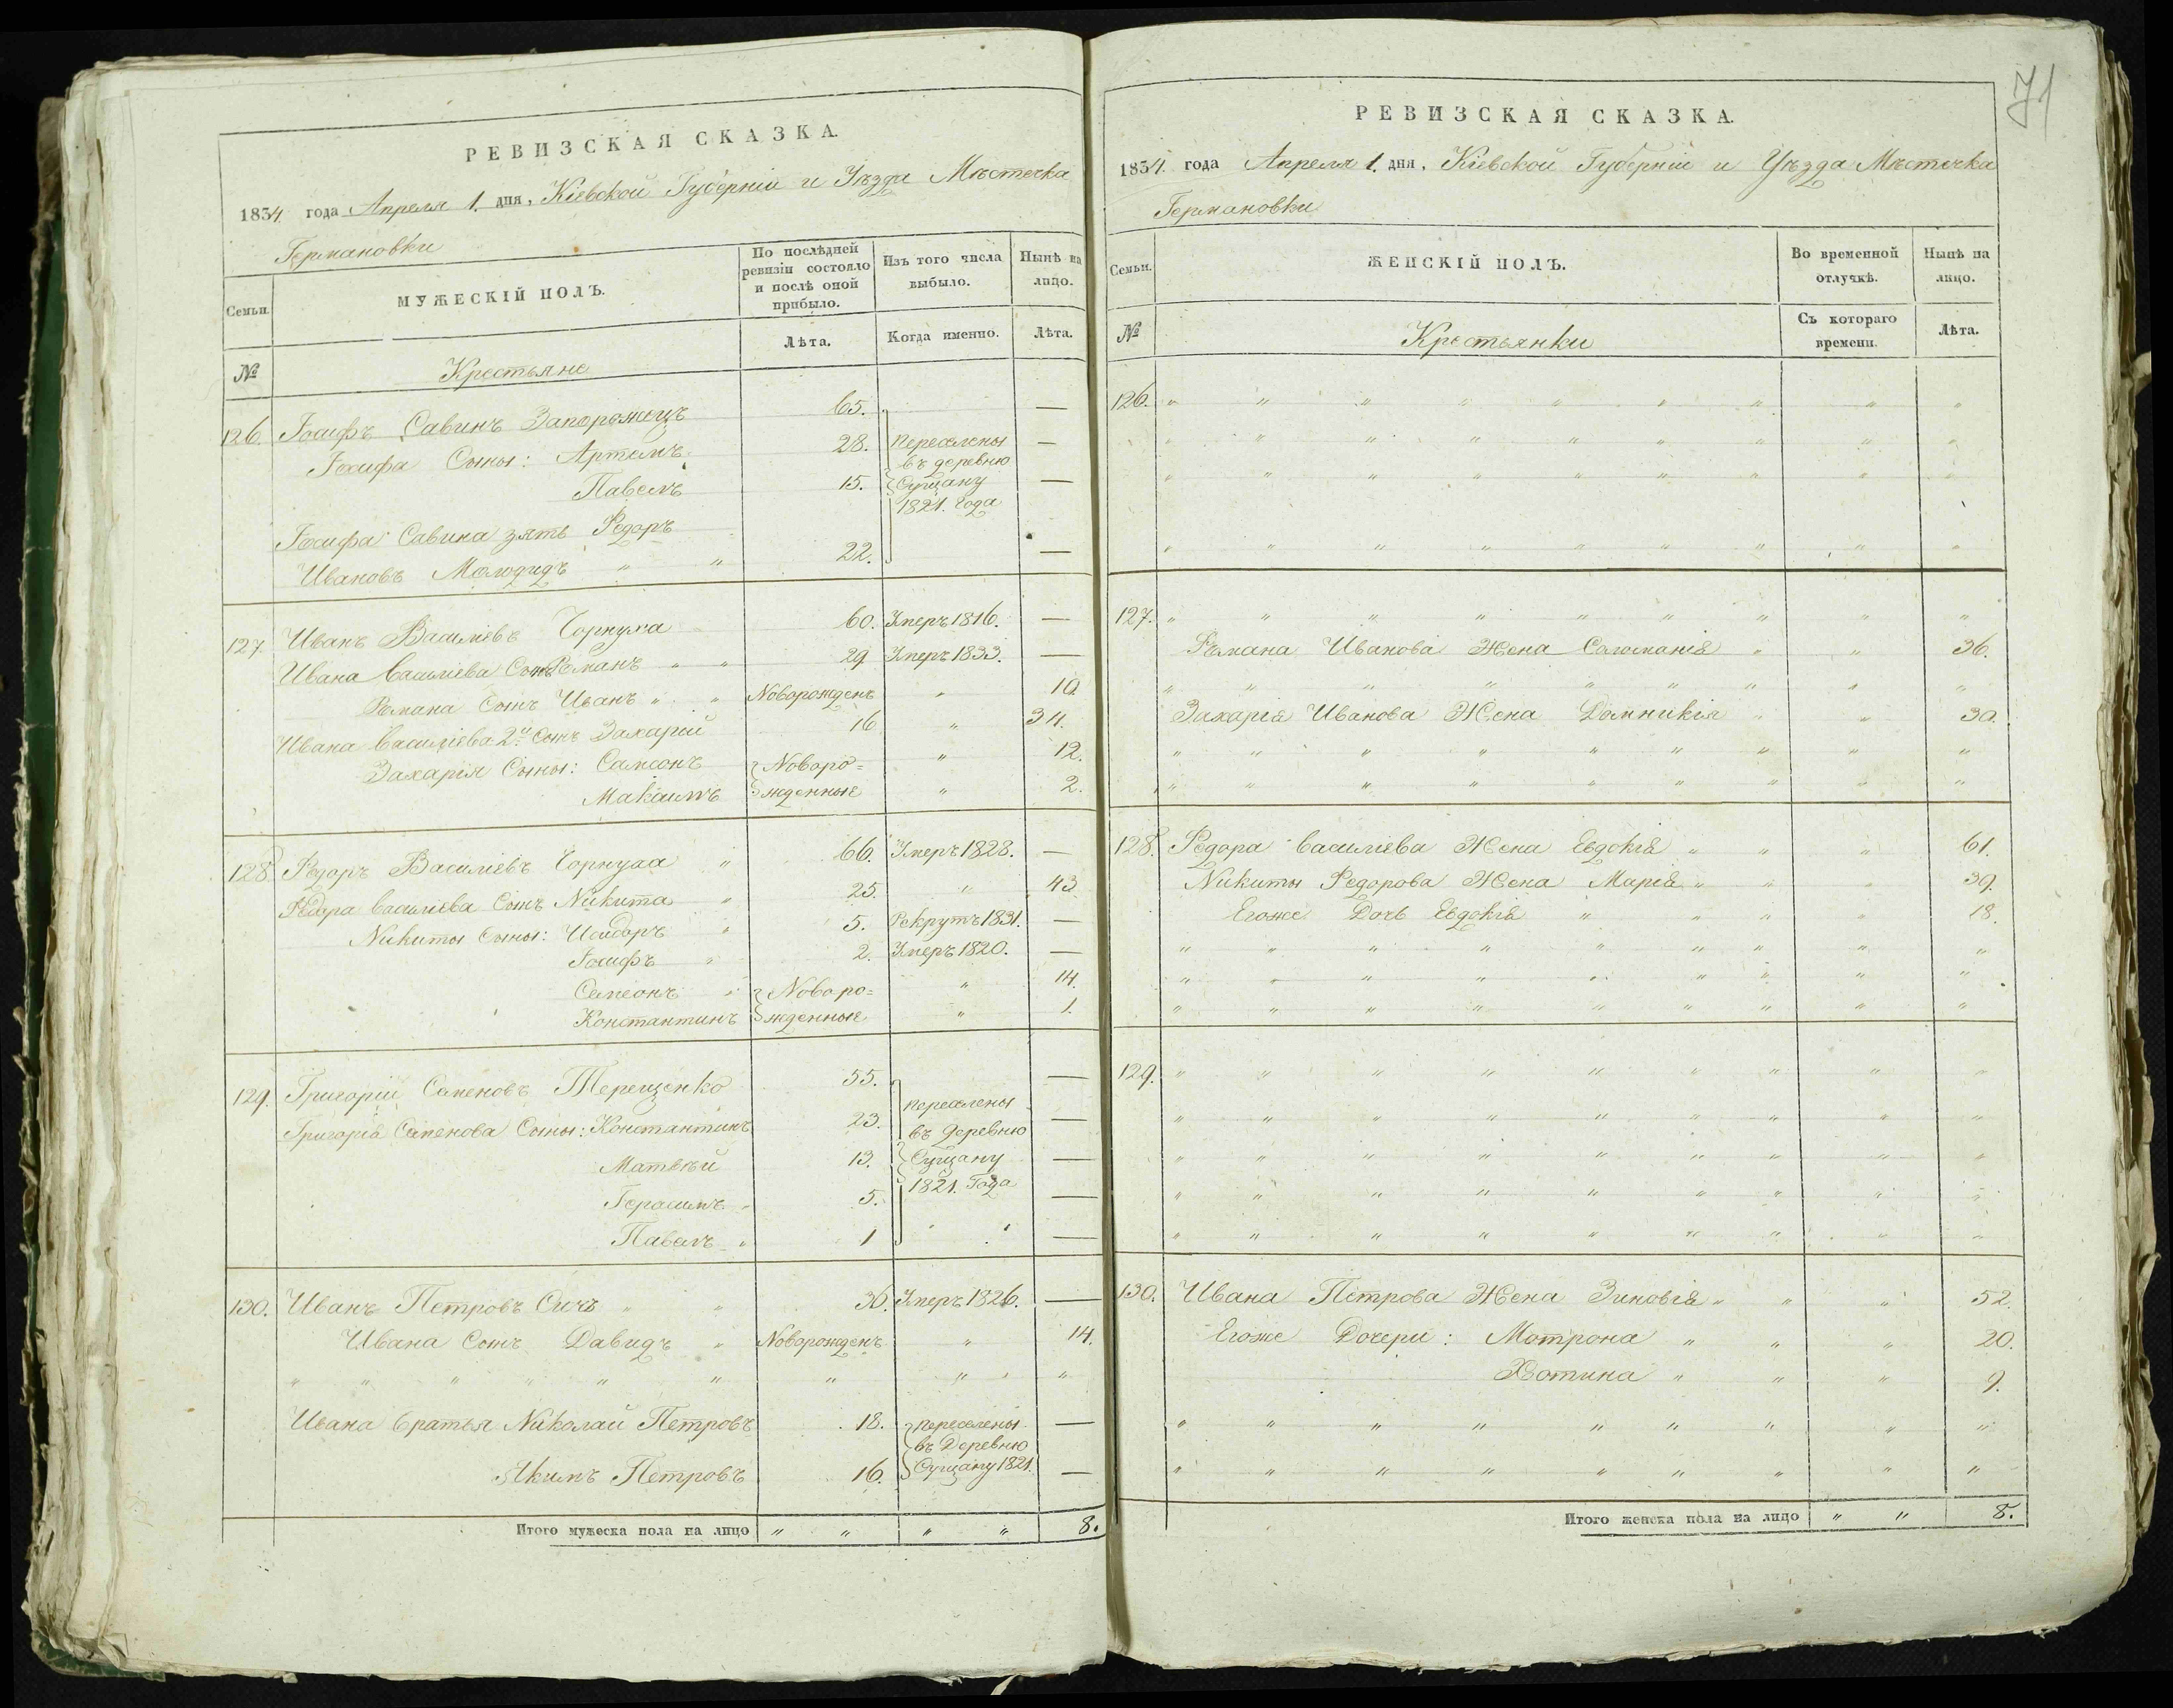 РЕВИЗСКАЯ СКАЗКА.
1834. года Апреля 1. дня, Кіевской Губерніи и Уѣзда Мѣстечка
Германовки
Семьи.
МУЖЕСКІЙ ПОЛЪ.
По послѣдней
ревизіи состояло
и послѣ оной
прибыло.
Изъ того числа
выбыло.
Нынѣ на
лицо.
Лѣта.
Когда именно.
Лѣта.
№
Крестьяне
126. Іосифъ Савинъ Запорожецъ 65. —
Іосифа Сыны: Артемъ 28. переселены —
въ деревню
Павелъ 15. Сущану —
1821. года
Іосифа Савина зять Федоръ
Ивановъ Молодидъ " " 22. —
127. Иванъ Василіевъ Чорнуха 60. Умеръ 1816. —
Ивана Василіева Сынъ Романъ " " 29 Умеръ 1833. —
Романа Сынъ Иванъ " " Новорожденъ " 10
Ивана Василіева 2й Сынъ Захарій 16 " 34.
Захарія Сыны: Самсонъ Новоро= " 12.
Максимъ жденные " 2.
128. Федоръ Василіевъ Чорнуха " 66. Умеръ 1828. —
Федора Василіева Сынъ Никита " 25. " 43
Никиты Сыны: Исидоръ " 5. Рекрутъ 1831. —
Іосифъ " 2. Умеръ 1820. —
Семеонъ " Новоро= " 14.
Константинъ жденные " 1.
129. Григорій Семеновъ Терещенко 55. —
переселены
Григорія Семенова Сыны: Константинъ 23. въ деревню —
Матвѣй 13. Сущану —
1821. Года
Герасимъ " 5. —
Павелъ " 1 —
130. Иванъ Петровъ Сичъ " " 36. Умеръ 1826. —
Ивана Сынъ Давидъ " Новорожденъ " 14.
" " " " " " " " "
Ивана братья Николай Петровъ 18. переселены —
въ Деревню
Якимъ Петровъ 16. Сущану 1821. —
Итого мужеска пола на лицо " " " " 8.
71
РЕВИЗСКАЯ СКАЗКА.
1834. года Апреля 1. дня, Кіевской Губерніи и Уѣзда Мѣстечка
Германовки
Семьи.
ЖЕНСКІЙ ПОЛЪ.
Во временной
отлучкѣ.
Нынѣ на
лицо.
№
Крестьянки
Съ котораго
времени.
Лѣта.
126. " " " " " " " " "
" " " " " " " " "
" " " " " " " " "
" " " " " " " " "
127. " " " " " " " " "
Романа Иванова Жена Соломанія " " 36.
" " " " " " " " "
Захарія Иванова Жена Домникія " " 30.
" " " " " " " " "
" " " " " " " " "
128. Федора Василіева Жена Евдокія " " " 61.
Никиты Федорова Жена Марія " " " 39.
Егоже Дочь Евдокія " " " " 18.
" " " " " " " " "
" " " " " " " " "
" " " " " " " " "
129. " " " " " " " " "
" " " " " " " " "
" " " " " " " " "
" " " " " " " " "
" " " " " " " " "
130. Ивана Петрова Жена Зиновія " " " 52.
Егоже Дочери: Мотрона " " " 20.
Хотина " " " 9.
" " " " " " " " "
" " " " " " " " "
Итого женска пола на лицо " " 8.